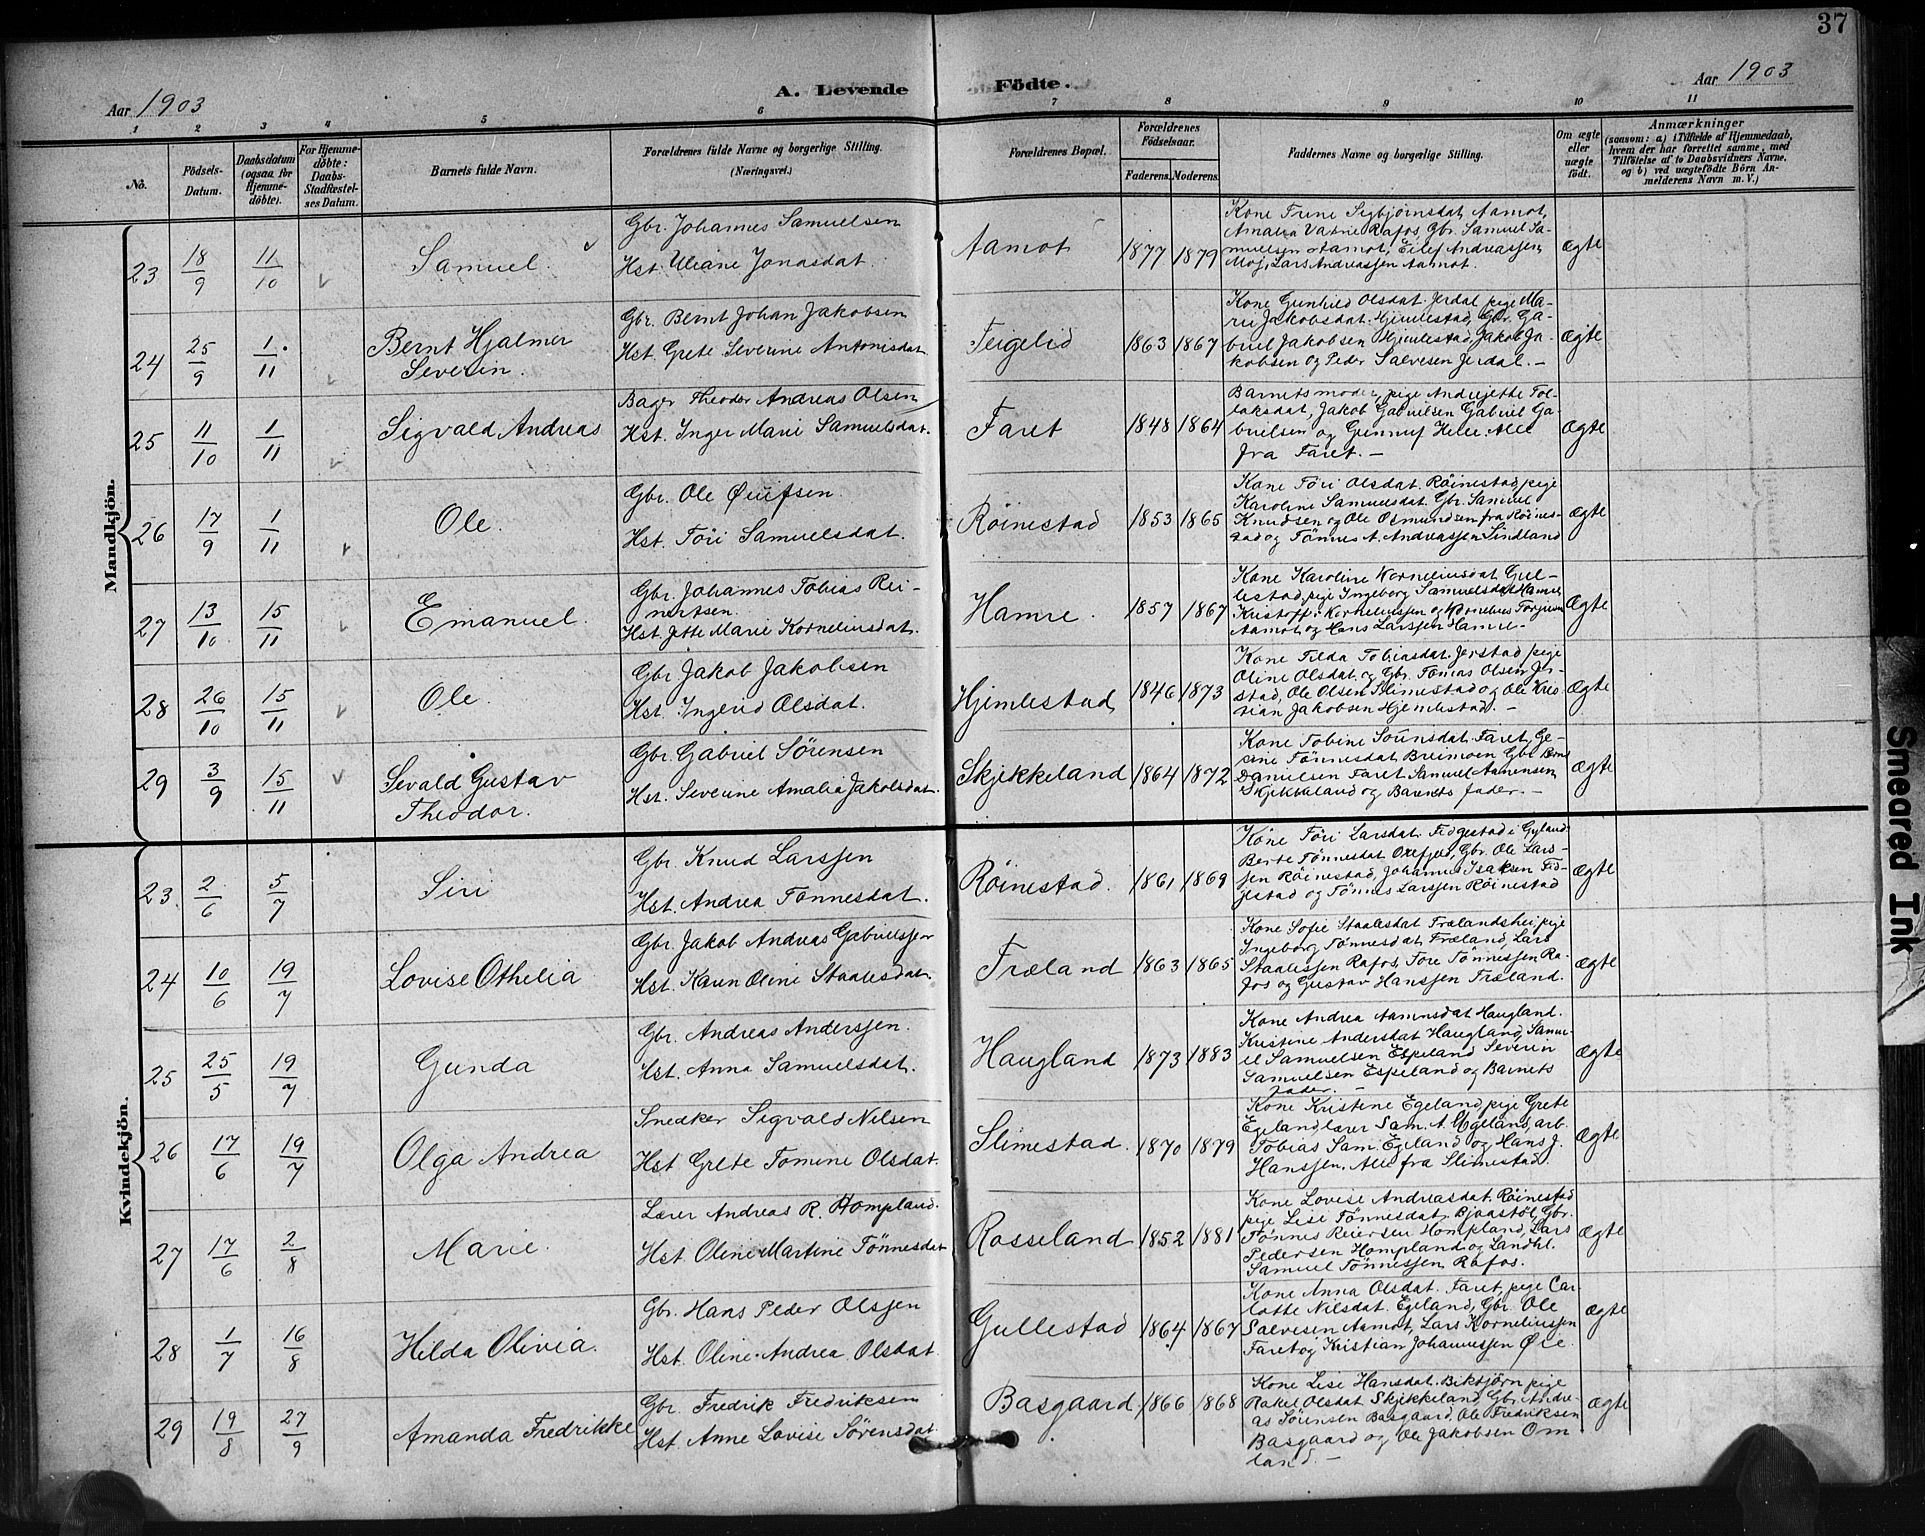 37
Aar 1903
A. Levende Födte.
Aar 1903
1 2 3 4 5 6 7 8 9 10 11
No.
Födsels-Datum.
Daabsdatum (ogsaa for Hjemme-döbte).
For Hjemme-döbte: Daabs-Stadfæstel-ses Datum.
Barnets fulde Navn.
Forældrenes fulde Navne og borgerlige Stilling.
(Næringsvei.)
Forældrenes Bopæl.
Forældrenes Födselsaar.
Faderens. Moderens.
Faddernes Navne og borgerlige Stilling.
Om ægte eller uægte födt.
Anmærkninger
(saasom: a) i Tilfælde af Hjemmedaab,
hvem der har forrettet samme, med
Tilföielse af to Daabsvidners Navne,
og b) ved uægtefödte Börn An-
melderens Navn m. V.)
Mandkjön.
23 18/9 11/10 Samuel.
Gbr. Johannes Samuelsen
Hst. Uliane Jonasdat.
Aamot 1877 1879
Kone Trine Sigbjørnsdat, Aamot,
Amalia Vatne Rafos, Gbr. Samuel Sa-
muelsen Aamot, Eilef Andreassen
Moj, Lars Andreassen Aamot.
Ægte
24 25/9 1/11 Bernt Hjalmer
Severin.
Gbr. Bernt Johan Jakobsen
Hst. Grete Severine Antonisdat
Feigelid 1863 1867
Kone Gunhild Olsdat. Jerdal, pige Ma-
rie Jakobsdat. Hjimlestad, Gbr. Ga-
briel Jakobsen Hjimlestad, Jakob Ja-
kobsen og Peder Salvesen Jerdal. –
Ægte
25 11/10 1/11 Sigvald Andreas
Bager Theodor Andreas Olsen
Hst. Inger Marie Samuelsdat.
Faret 1848 1864
Barnets moder, pige Andrejette Tol-
laksdat, Jakob Gabrielsen Gabriel Ga-
brielsen og Gunnuf Helle. Alle
fra Faret. –
Ægte
26 17/9 1/11 Ole.
Gbr. Ole Øuufsen.
Hst. Töri Samuelsdat.
Röinestad 1853 1865
Kone Töri Olsdat. Röinestad, pige
Karoline Samuelsdat. Gbr. Samuel
Knudsen og Ole Osmundsen fra Röines-
tad og Tönnes A. Andreassen Lindland
Ægte
27 13/10 15/11 Emanuel.
Gbr. Johannes Tobias Rei-
nertsen.
Hst. Jette Marie Korneliusdat.
Hamre. 1857 1867
Kone Karoline Korneliusdat Gul-
lestad, pige Ingeborg Samuelsdat Hamre,
Kristoffer Korneliussen og Kornelius Torjusen
Aamot og Hans Larssen Hamre –
Ægte
28 26/10 15/11 Ole.
Gbr. Jakob Jakobsen
Hst. Ingerid Olsdat.
Hjimlestad, 1846 1873
Kone Tilda Tobiasdat. Jerstad, pige
Oline Olsdat, og Gbr. Tomas Olsen Jer-
stad, Ole Olsen Slimestad og Ole Kris-
tian Jakobsen Hjemlestad. –
Ægte
29 3/9 15/11 Sevald Gustav
Theodor.
Gbr. Gabriel Sörensen
Hst. Severine Amalia Jakobsdat.
Skjekkeland 1864 1872
Kone Tobine Sörinsdat. Faret, Ge-
sine Tönnesdat Breimoen, Gbr. Bernt
Danielsen Faret, Samuel Aanensen
Skjekkeland og Barnets fader. –
Ægte
Kvindekjön.
23. 2/6 5/7 Siri
Gbr. Knud Larssen
Hst. Andrea Tönnesdat.
Röinestad. 1861 1869
Kone Töri Larsdat. Fidgestad i Gyland,
Berte Tönnesdat Oxefjeld, Gbr. Ole Lars-
sen Röinestad, Johannes Isaksen Fid-
jestad og Tönnes Larssen Röinestad
Ægte
24 10/6 19/7 Lovise Othelia
Gbr. Jakob Andreas Gabrielssen
Hst. Karen Oline Staalesdat.
Træland 1863 1865
Kone Sofie Staalesdat Trælandshei, pige
Ingeborg Tönnesdat Træland, Lars
Staalessen Rafos, Tore Tönnessen Ra-
fos og Gustav Hanssen Træland.
Ægte
25 25/5 19/7 Gunda
Gbr. Andreas Anderssen.
Hst. Anna Samuelsdat.
Haugland 1873 1883
Kone Andrea Aamundsdat Haugland.
Kristine Andersdat Haugland, Samu-
el Samuelsen Espeland, Severin
Samuelsen Espeland og Barnets
fader. –
Ægte
26 17/6 19/7 Olga Andrea
Snedker Sigvald Nilsen
Hst Grete Tomine Olsdat.
Slimestad. 1870 1879
Kone Kristine Egeland, pige Grete
Egeland, lærer Sam. A. Egeland, arb.
Tobias Sam. Egeland og Hans J.
Hanssen. Alle fra Slimestad.
Ægte
27 17/6 2/8 Marie.
Lærer Andreas R. Hompland.
Hst Oline Martine Tönnesdat
Rosseland 1852 1881
Kone Lovise Andreasdat. Röinestad
pige Lise Tönnesdat. Bjaastöl, Gbr.
Tönnes Reiersen Hompland, Lars
Pedersen Hompland og Landhl.
Samuel Tönnessen Rafos.
Ægte
28 1/7 16/8 Hilda Olivia.
Gbr. Hans Peder Olssen
Hst. Oline Andrea Olsdat.
Gullestad 1864 1867
Kone Anna Olsdat. Faret, pige Car-
lotte Nilsdat. Egeland, Gbr. Ole
Salvesen Aamot, Lars Korneliussen
Faret og Kristian Johannessen Øie.
Ægte
29 19/8 27/9 Amanda Fredrikke
Gbr. Fredrik Fredriksen
Hst. Anne Lovise Sörensdat.
Basgaard. 1866 1868
Kone Lise Hansdat. Bikbjörn pige
Rakel Olsdat Skjekkeland, Gbr. Andre-
as Sörensen Basgaard, Ole Fredriksen
Basgaard og Ole Jakobsen Om
land. –
Ægte
Smeared Ink